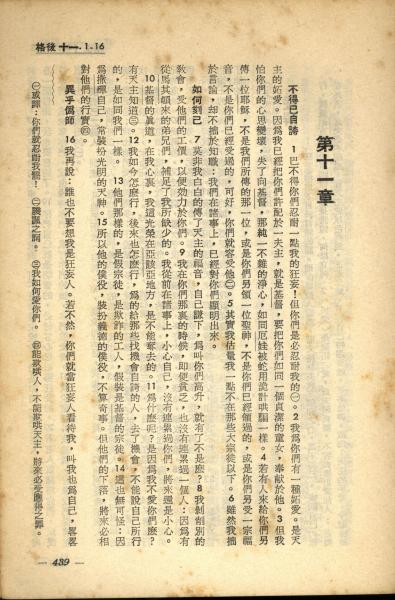 格後十一·1.16
第十一章
不得已自誇 1 巴不得你們忍耐一點我的狂妄！但你們是必忍耐我的㊀。2 我爲你們有一種妬愛。是天
主的妬愛。因爲我已經把你們許配於一夫主，就是基督，要把你們如同一個貞潔的童女，奉獻於他。3 但我
怕你們的心思變壞，失了向基督，那純一不雜的淨心，如同厄娃被蛇用詭計哄騙一樣。4 若有人來給你們另
傳一位耶穌，不是我們所傳的那一位，或是你們另領一位聖神，不是你們已經領過的，或是你們另受一宗福
音，不是你們已經受過的，可好，你們就容受他㊁。5 其實我估量我一點不在那些大宗徒以下。6 雖然我拙
於言論，却不拙於知識：我們在諸事上，已經對你們顯明出來。
如何刻己 7 莫非我白白的傳了天主的福音，自己謙下，爲叫你們高升，就有了不是麽？8 我剝削別的
敎會，受他們的工價，以便効力於你們。9 我在你們那裏的時候，即使貧乏，也沒有連累過一個人：因爲有
從馬其頓來的弟兄們，補足了我所缺少的。我從前在諸事上，小心自己，沒有連累過你們，將來還是小心。
10 基督的眞道，在我心裏，我這光榮在亞該亞地方，是不能奪去的。11 爲什麽呢？是因爲我不愛你們麽？
有天主知道㊂。12 我如今怎麽行，後來也怎麽行，爲的給那些找機會自誇的人，去了機會，不能說自己所行
的，是如同我們一樣。13 他們那樣的，是假宗徒，是欺詐的工人，假裝是基督的宗徒。14 這也無可怪：因
爲撒殫自己，常裝扮光明的天神。15 所以他的僕役，裝扮義德的僕役，不算奇事。但他們的下落，將來必相
對他們的行實㊃。
異乎僞師 16 我再說：誰也不要想我是狂妄人。若不然，你們就當狂妄人看待我，叫我也爲自己，畧畧
㊀或譯：你們就忍耐我罷！ ㊁譏諷之詞。 ㊂我如何愛你們。 ㊃能欺哄人，不能欺哄天主，將來必受應得之罪。
— 439 —